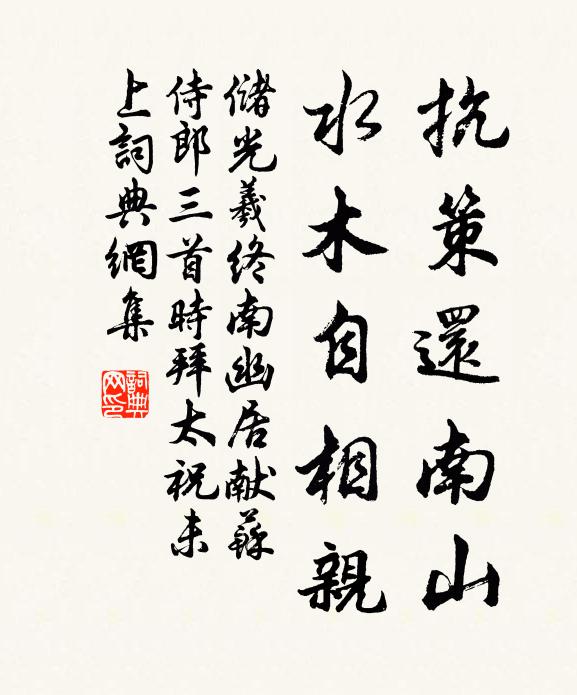 抗策還南山
水木自相親
儲光羲終南幽居献蘇
侍郎三首時拜太祝未
上詞典網集
詞典
网印